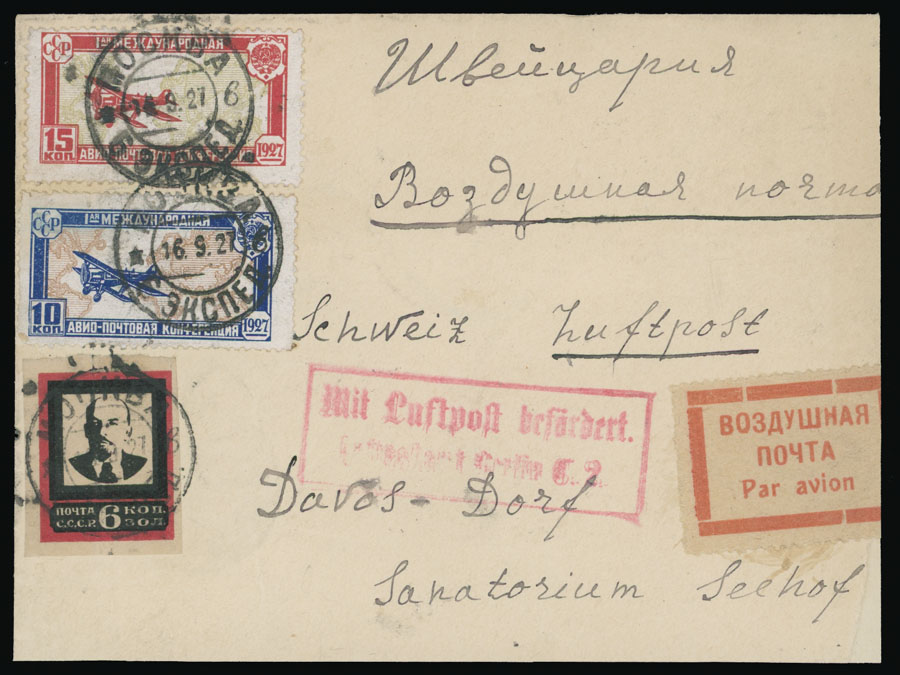 СССР
1АЯ МЕЖДУНАРОДНАЯ
15 КОП.
АВИО-ПОЧТОВАЯ КОНФЕРЕНЦИЯ 1927
МОСКВА
16.9.27 6
ЭКСПЕД.
СССР
1АЯ МЕЖДУНАРОДНАЯ
10 КОП.
АВИО-ПОЧТОВАЯ КОНФЕРЕНЦИЯ 1927
МОСКВА
16.9.27
ЭКСПЕД.
ПОЧТА С.С.С.Р. 6 КОП. ЗОЛ.
МОСКВА
Швейцария
Воздушная почта
Schweiz Luftpost
Mit Luftpost befördert.
Luftpostamt Berlin C. 2.
ВОЗДУШНАЯ
ПОЧТА
Par avion
Davos-Dorf
Sanatorium Seehof